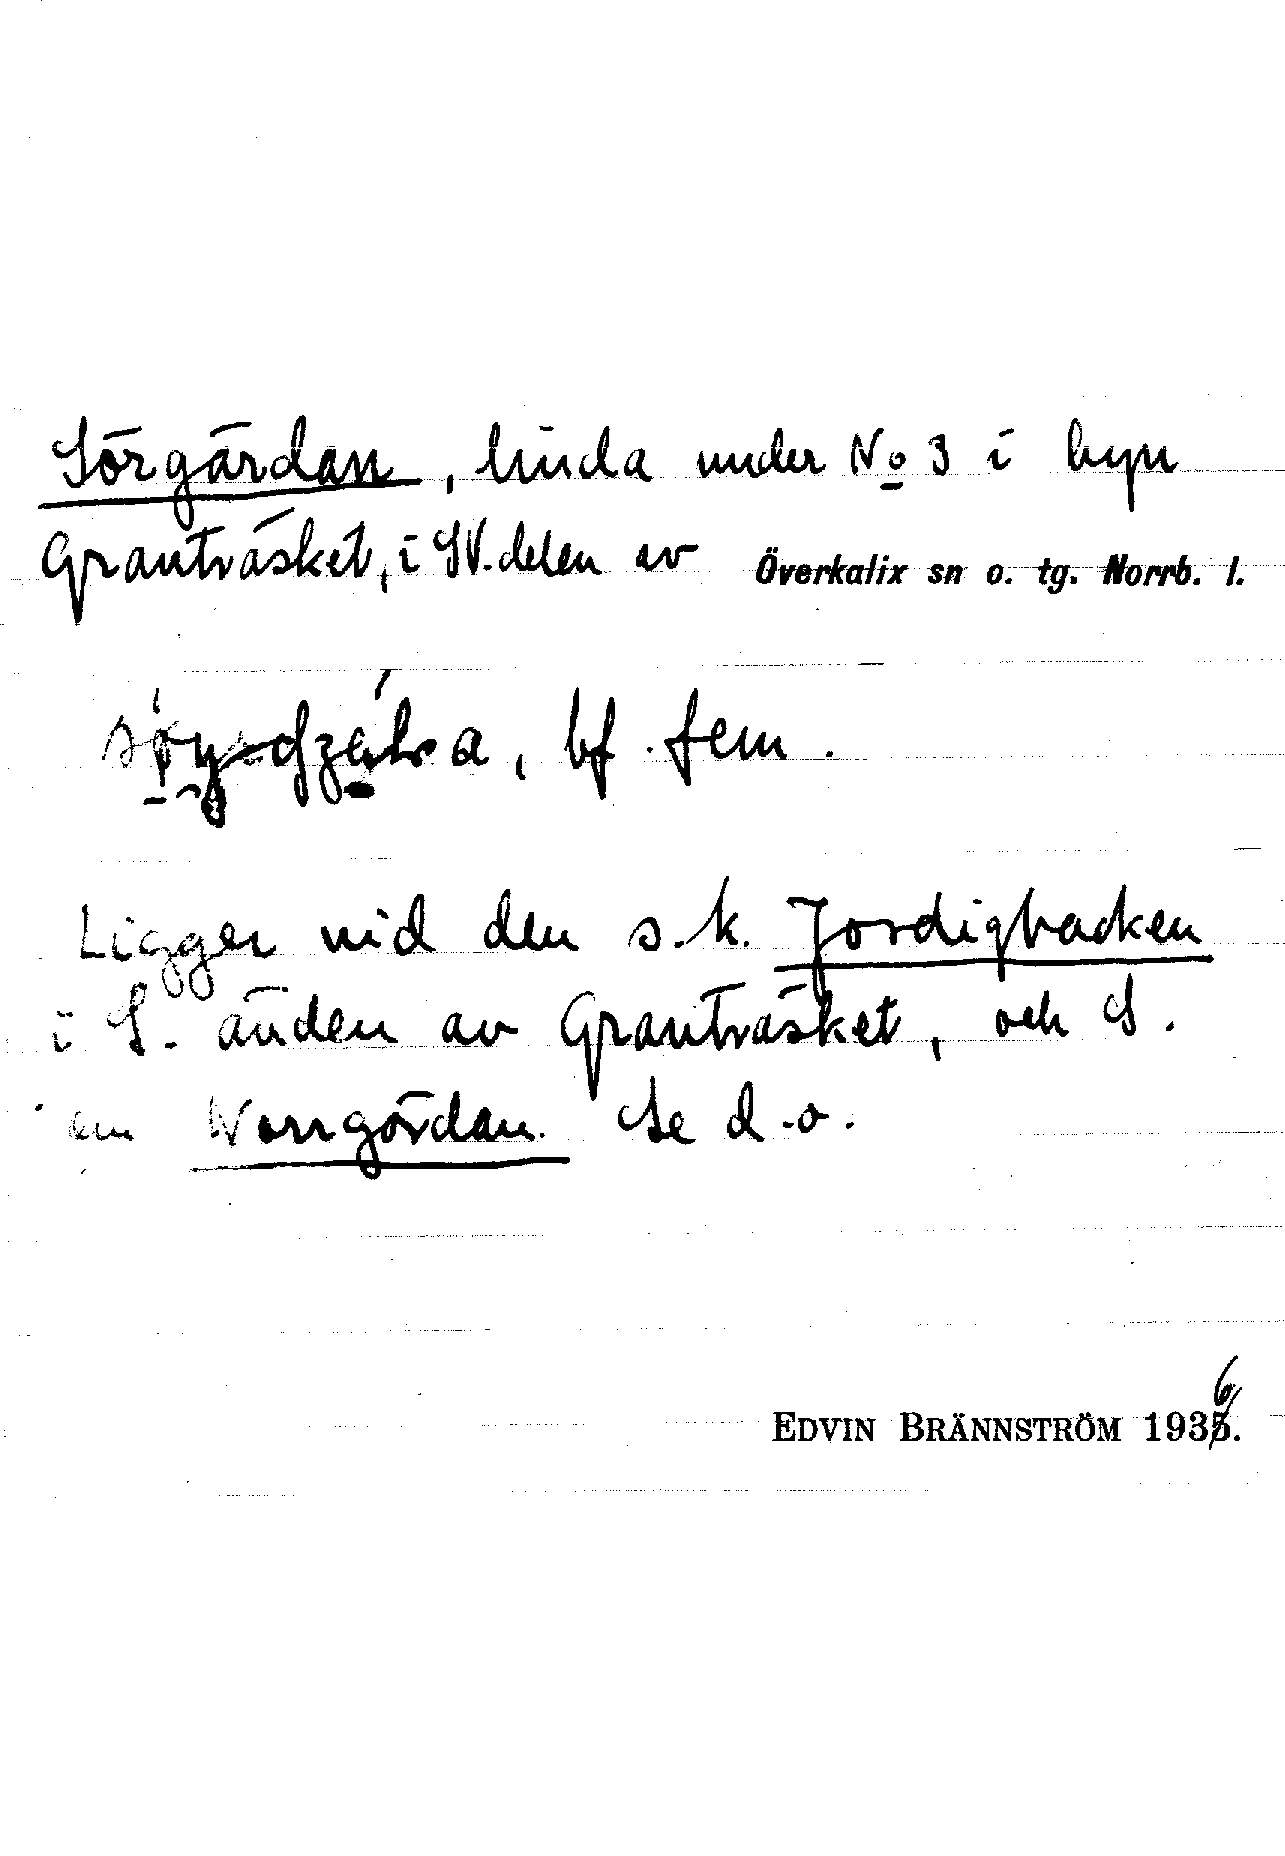 Sörgärdan, linda under No 3 i byn
Granträsket, i SV. delen av Överkalix sn o. tg. Norrb. l.
bf. fem.
Ligger vid den s.k. Jordigbacken
i S. änden av Granträsket, och S.
om Norrgärdan. Se d.o.
EDVIN BRÄNNSTRÖM 1936.